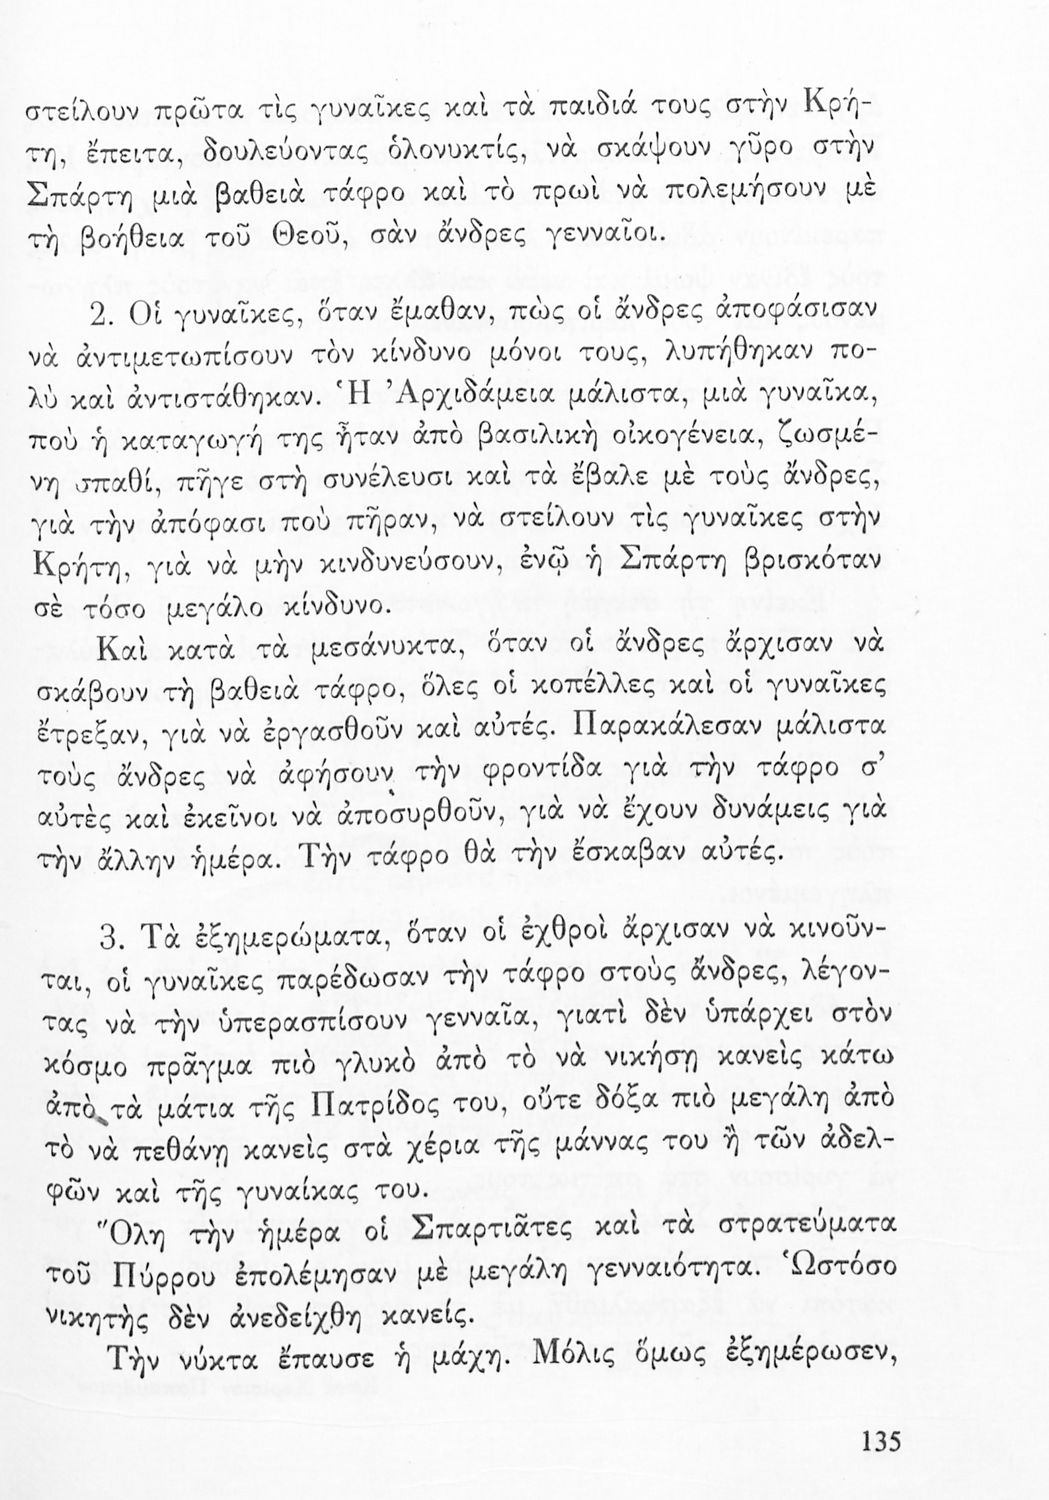 στείλουν πρῶτα τὶς γυναῖκες καὶ τὰ παιδιά τους στὴν Κρή-
τη, ἔπειτα, δουλεύοντας ὁλονυκτίς, νὰ σκάψουν γῦρο στὴν
Σπάρτη μιὰ βαθειὰ τάφρο καὶ τὸ πρωὶ νὰ πολεμήσουν μὲ
τὴ βοήθεια τοῦ Θεοῦ, σὰν ἄνδρες γενναῖοι.
2. Οἱ γυναῖκες, ὅταν ἔμαθαν, πὼς οἱ ἄνδρες ἀποφάσισαν
νὰ ἀντιμετωπίσουν τὸν κίνδυνο μόνοι τους, λυπήθηκαν πο-
λὺ καὶ ἀντιστάθηκαν. Ἡ Ἀρχιδάμεια μάλιστα, μιὰ γυναῖκα,
ποὺ ἡ καταγωγή της ἦταν ἀπὸ βασιλικὴ οἰκογένεια, ζωσμέ-
νη σπαθί, πῆγε στὴ συνέλευσι καὶ τὰ ἔβαλε μὲ τοὺς ἄνδρες,
γιὰ τὴν ἀπόφασι ποὺ πῆραν, νὰ στείλουν τὶς γυναῖκες στὴν
Κρήτη, γιὰ νὰ μὴν κινδυνεύσουν, ἐνῷ ἡ Σπάρτη βρισκόταν
σὲ τόσο μεγάλο κίνδυνο.
Καὶ κατὰ τὰ μεσάνυκτα, ὅταν οἱ ἄνδρες ἄρχισαν νὰ
σκάβουν τὴ βαθειὰ τάφρο, ὅλες οἱ κοπέλλες καὶ οἱ γυναῖκες
ἔτρεξαν, γιὰ νὰ ἐργασθοῦν καὶ αὐτές. Παρακάλεσαν μάλιστα
τοὺς ἄνδρες νὰ ἀφήσουν τὴν φροντίδα γιὰ τὴν τάφρο σ’
αὐτὲς καὶ ἐκεῖνοι νὰ ἀποσυρθοῦν, γιὰ νὰ ἔχουν δυνάμεις γιὰ
τὴν ἄλλην ἡμέρα. Τὴν τάφρο θὰ τὴν ἔσκαβαν αὐτές.
3. Τὰ ἐξημερώματα, ὅταν οἱ ἐχθροὶ ἄρχισαν νὰ κινοῦν-
ται, οἱ γυναῖκες παρέδωσαν τὴν τάφρο στοὺς ἄνδρες, λέγον-
τας νὰ τὴν ὑπερασπίσουν γενναῖα, γιατὶ δὲν ὑπάρχει στὸν
κόσμο πρᾶγμα πιὸ γλυκὸ ἀπὸ τὸ νὰ νικήσῃ κανεὶς κάτω
ἀπὸ τὰ μάτια τῆς Πατρίδος του, οὔτε δόξα πιὸ μεγάλη ἀπὸ
τὸ νὰ πεθάνῃ κανεὶς στὰ χέρια τῆς μάννας του ἢ τῶν ἀδελ-
φῶν καὶ τῆς γυναίκας του.
Ὅλη τὴν ἡμέρα οἱ Σπαρτιᾶτες καὶ τὰ στρατεύματα
τοῦ Πύρρου ἐπολέμησαν μὲ μεγάλη γενναιότητα. Ὡστόσο
νικητὴς δὲν ἀνεδείχθη κανείς.
Τὴν νύκτα ἔπαυσε ἡ μάχη. Μόλις ὅμως ἐξημέρωσεν,
135